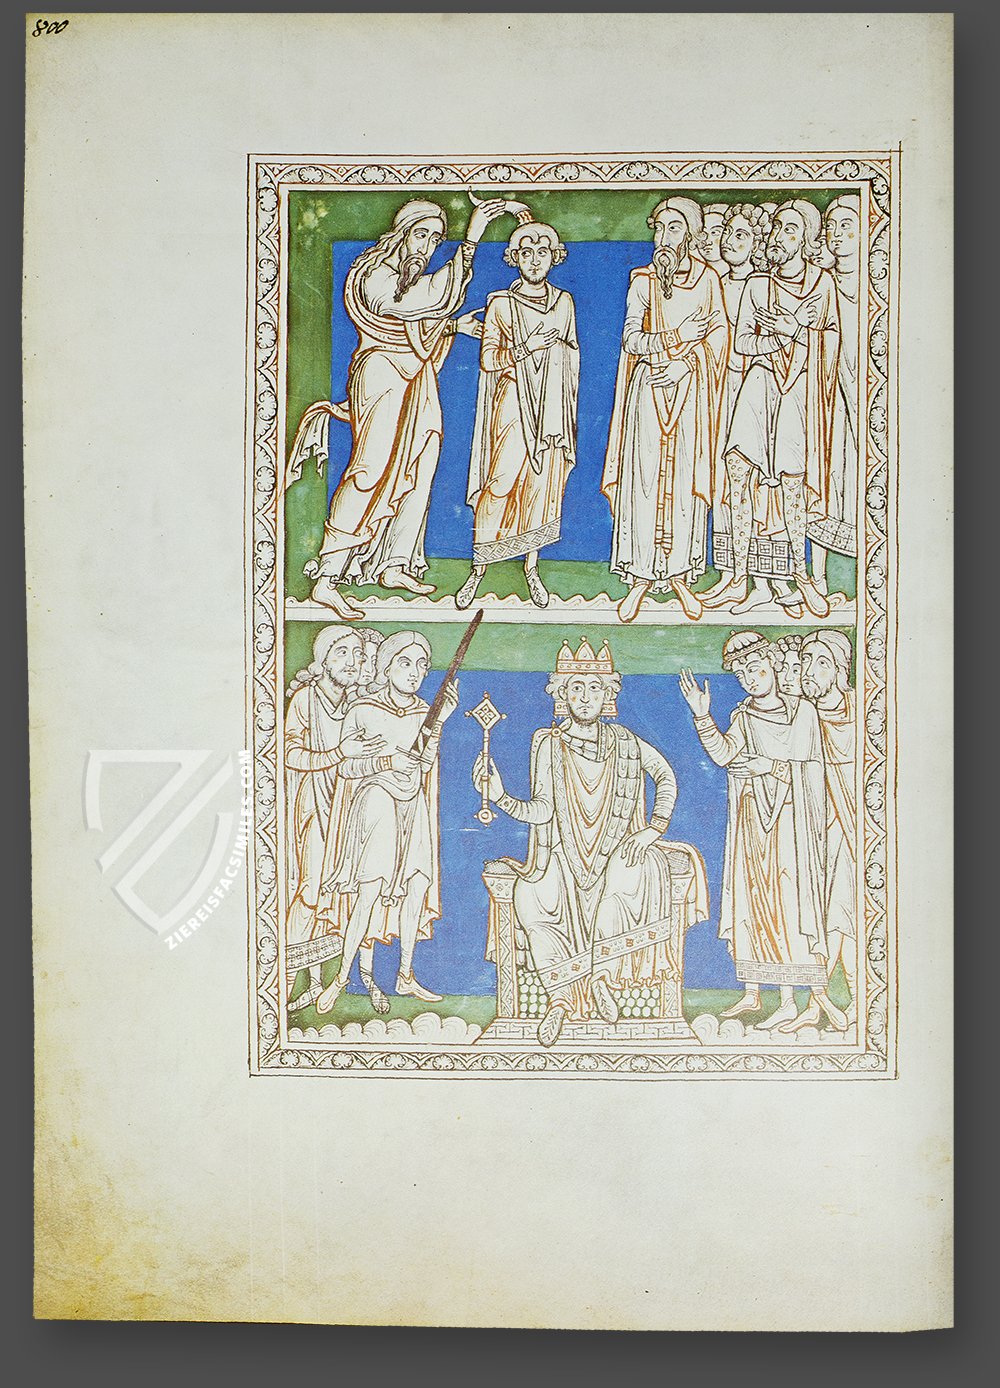 800
ZIEREISFACSIMILES.COM